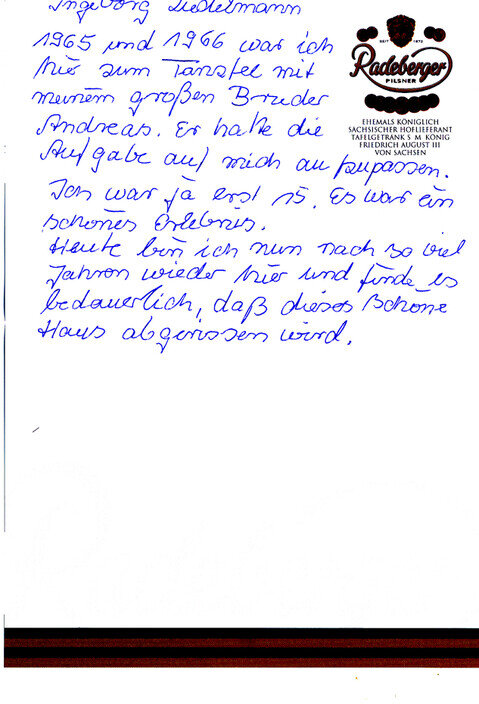 Ingeborg Liedelmann
1965 und 1966 war ich
hier zum Tanztee mit
meinem großen Bruder
Andreas. Er hatte die
Aufgabe auf mich aufzupassen.
Ich war ja erst 15. Es war ein
schönes Erlebnis.
Heute bin ich nun nach so viel
Jahren wieder hier und finde es
bedauerlich, daß dieses schöne
Haus abgerissen wird.
SEIT 1872
Radeberger
PILSNER
EHEMALS KÖNIGLICH
SÄCHSISCHER HOFLIEFERANT
TAFELGETRÄNK S. M. KÖNIG
FRIEDRICH AUGUST III
VON SACHSEN